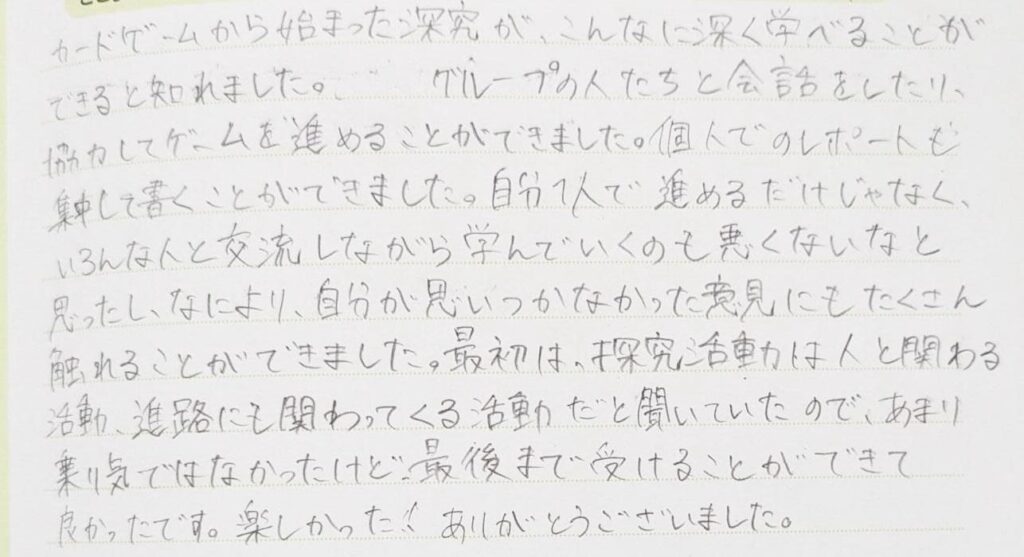 カードゲームから始まった深究が、こんなに深く学べることが
できると知れました。 グループの人たちと会話をしたり、
協力してゲームを進めることができました。個人でのレポートも
集中して書くことができました。自分1人で進めるだけじゃなく、
いろんな人と交流しながら学んでいくのも悪くないなと
思ったし、なにより、自分が思いつかなかった意見にもたくさん
触れることができました。最初は、探究活動は人と関わる
活動、進路にも関わってくる活動だと聞いていたので、あまり
乗り気ではなかったけど、最後まで受けることができて
良かったです。楽しかった! ありがとうございました。